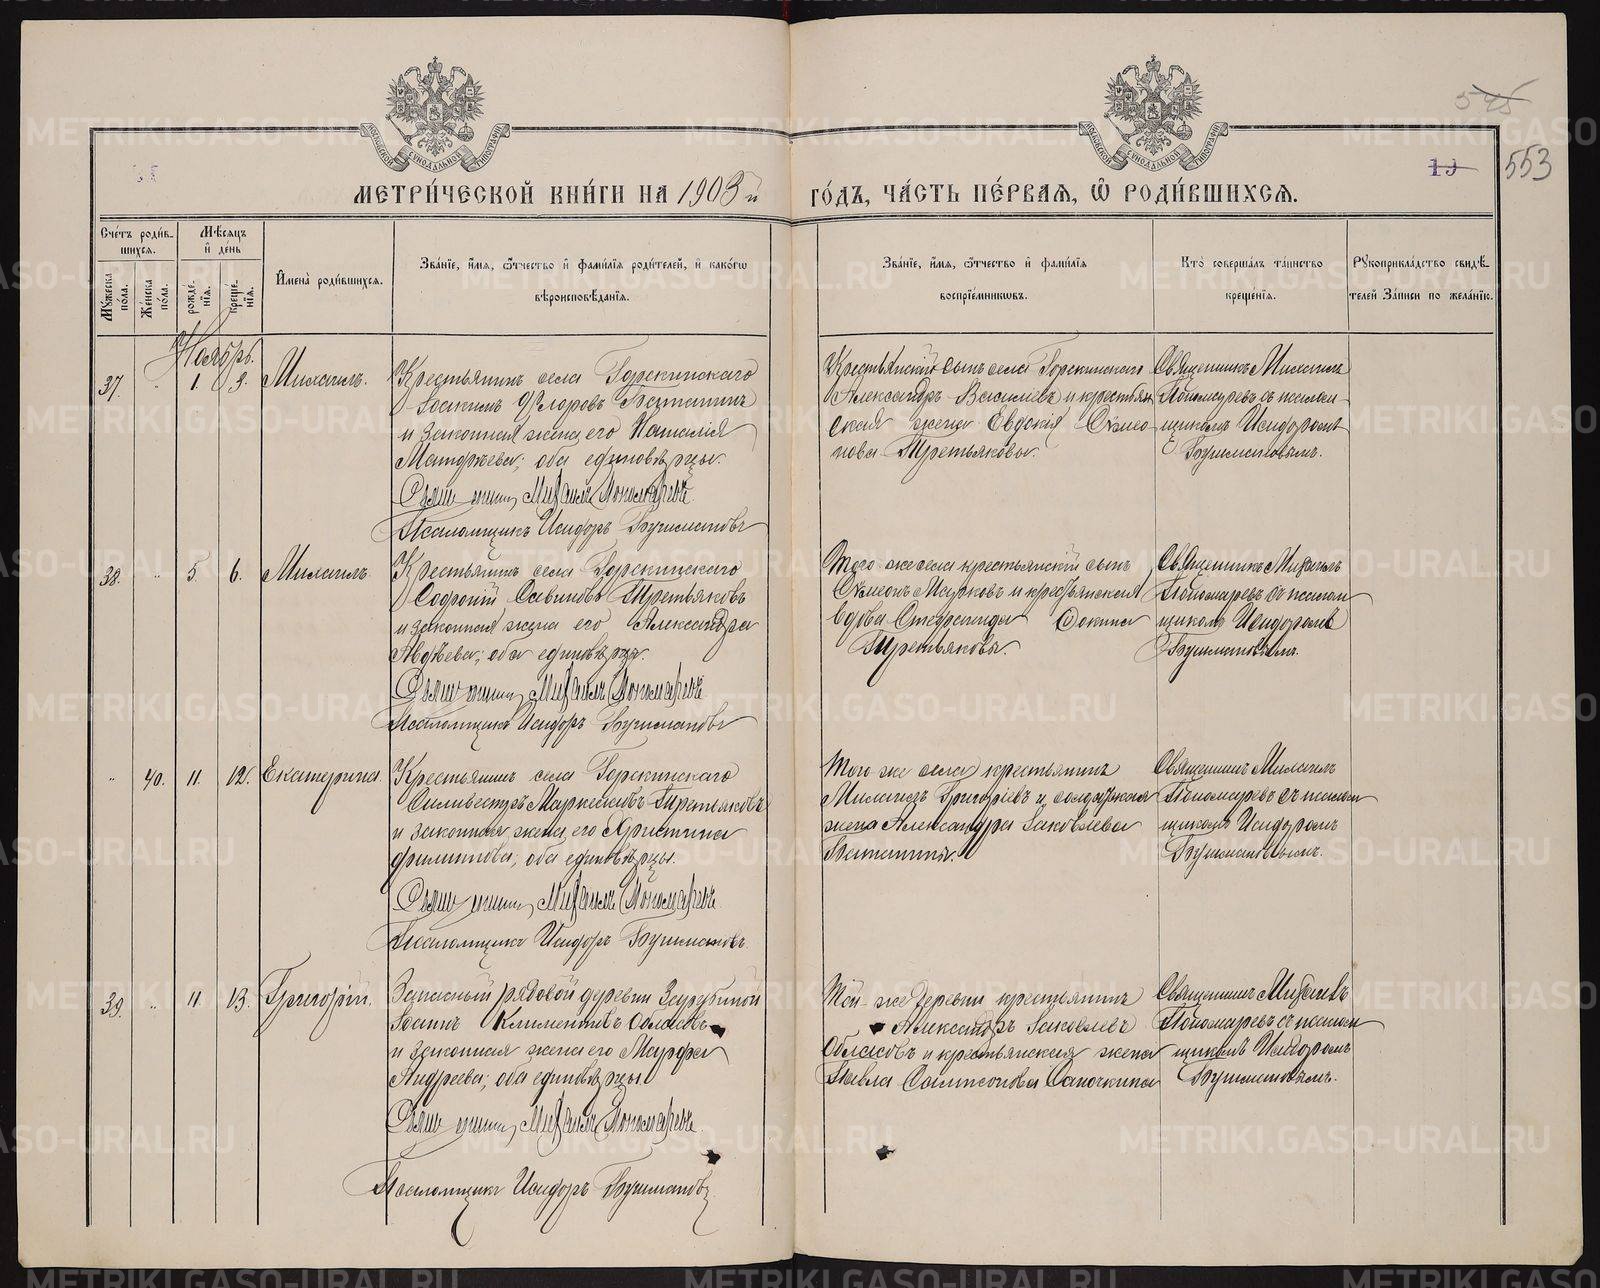 525
19
553
МОСКОВСКОЙ СУНОДАЛЬНОЙ ТИПОГРАФІИ
МОСКОВСКОЙ СУНОДАЛЬНОЙ ТИПОГРАФІИ
МЕТРИ́ЧЕСКОЙ КНИ́ГИ НА 1903 й ГО́ДЪ, ЧА́СТЬ ПЕ́РВАЯ, Ѡ РОДИ́ВШИХСЯ.
Сче́тъ роди́в-
шихся.
Мѣ́сяцъ
и҆ де́нь
Мꙋ́жеска по́ла.
Же́нска по́ла.
рожде́-
нія.
креще́-
нія.
И҆мена̀ роди́вшихся.
Зва́ніе, и҆́мя, ѻ҆́тчество и҆ фами́лія роди́телей, и҆ како́гѡ
вѣроисповѣ́данія.
Зва́ніе, и҆́мя, ѻ҆́тчество и҆ фами́лія
воспріе́мникѡвъ.
Кто̀ соверша́лъ та́инство
креще́нія.
Рꙋкоприкла́дство свидѣ́-
телей за́писи по жела́нію.
Ноябрь.
37. " 1. 9. Михаилъ.
Крестьянинъ села Горскинскаго
Іоакимъ Флоровъ
и законная жена его Наталія
Матѳѣева; оба единовѣрцы.
Священникъ Михаилъ Пономаревъ
Псаломщикъ Исидоръ Бушмановъ
Крестьянскій сынъ села Горскинскаго
Александръ Васильевъ и крестьян
ская жена Евдокія Симео
нова Третьяковы.
Священникъ Михаилъ
Пономаревъ съ псалом
щикомъ Исидоромъ
Бушмановымъ.
38. " 5. 6. Михаилъ
Крестьянинъ села Горскинскаго
Софроній Савиновъ Третьяковъ
и законная жена его Александра
Авдѣева; оба единовѣрцы.
Священникъ Михаилъ Пономаревъ
Псаломщикъ Исидоръ Бушмановъ
Того же села крестьянскій сынъ
Симеонъ Марковъ и крестьянская
вдова Фокина
Третьяковы.
Священникъ Михаилъ
Пономаревъ съ псалом
щикомъ Исидоромъ
Бушмановымъ.
" 40. 11. 12. Екатерина.
Крестьянинъ села Горскинскаго
Силивестръ Маркеловъ Третьяковъ
и законная жена его Христина
Филиппова; оба единовѣрцы.
Священникъ Михаилъ Пономаревъ
Псаломщикъ Исидоръ Бушмановъ
Того же села крестьянинъ
Михаилъ Григоріевъ и солдатская
жена Александра Іаковлева
Священникъ Михаилъ
Пономаревъ съ псалом
щикомъ Исидоромъ
Бушмановымъ.
39. " 11. 13. Григорій.
Запасный рядовой деревни Зырубиной
Іоаннъ Климентовъ Обласовъ
и законная жена его Марфа
Андреева; оба единовѣрцы.
Священникъ Михаилъ Пономаревъ
Псаломщикъ Исидоръ Бушмановъ
Той же деревни крестьянинъ
Александръ Іаковлевъ
Обласовъ и крестьянская жена
Павла Сампсонова Саночкина
Священникъ Михаилъ
Пономаревъ съ псалом
щикомъ Исидоромъ
Бушмановымъ.
METRIKI.GASO-URAL.RU